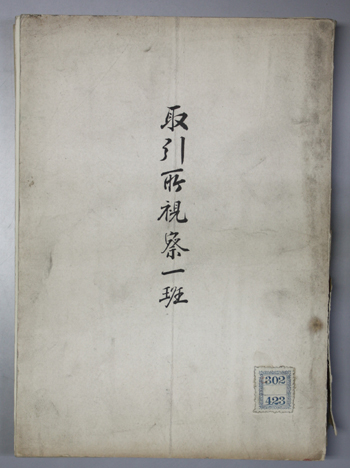 取引所視察一班
302
423